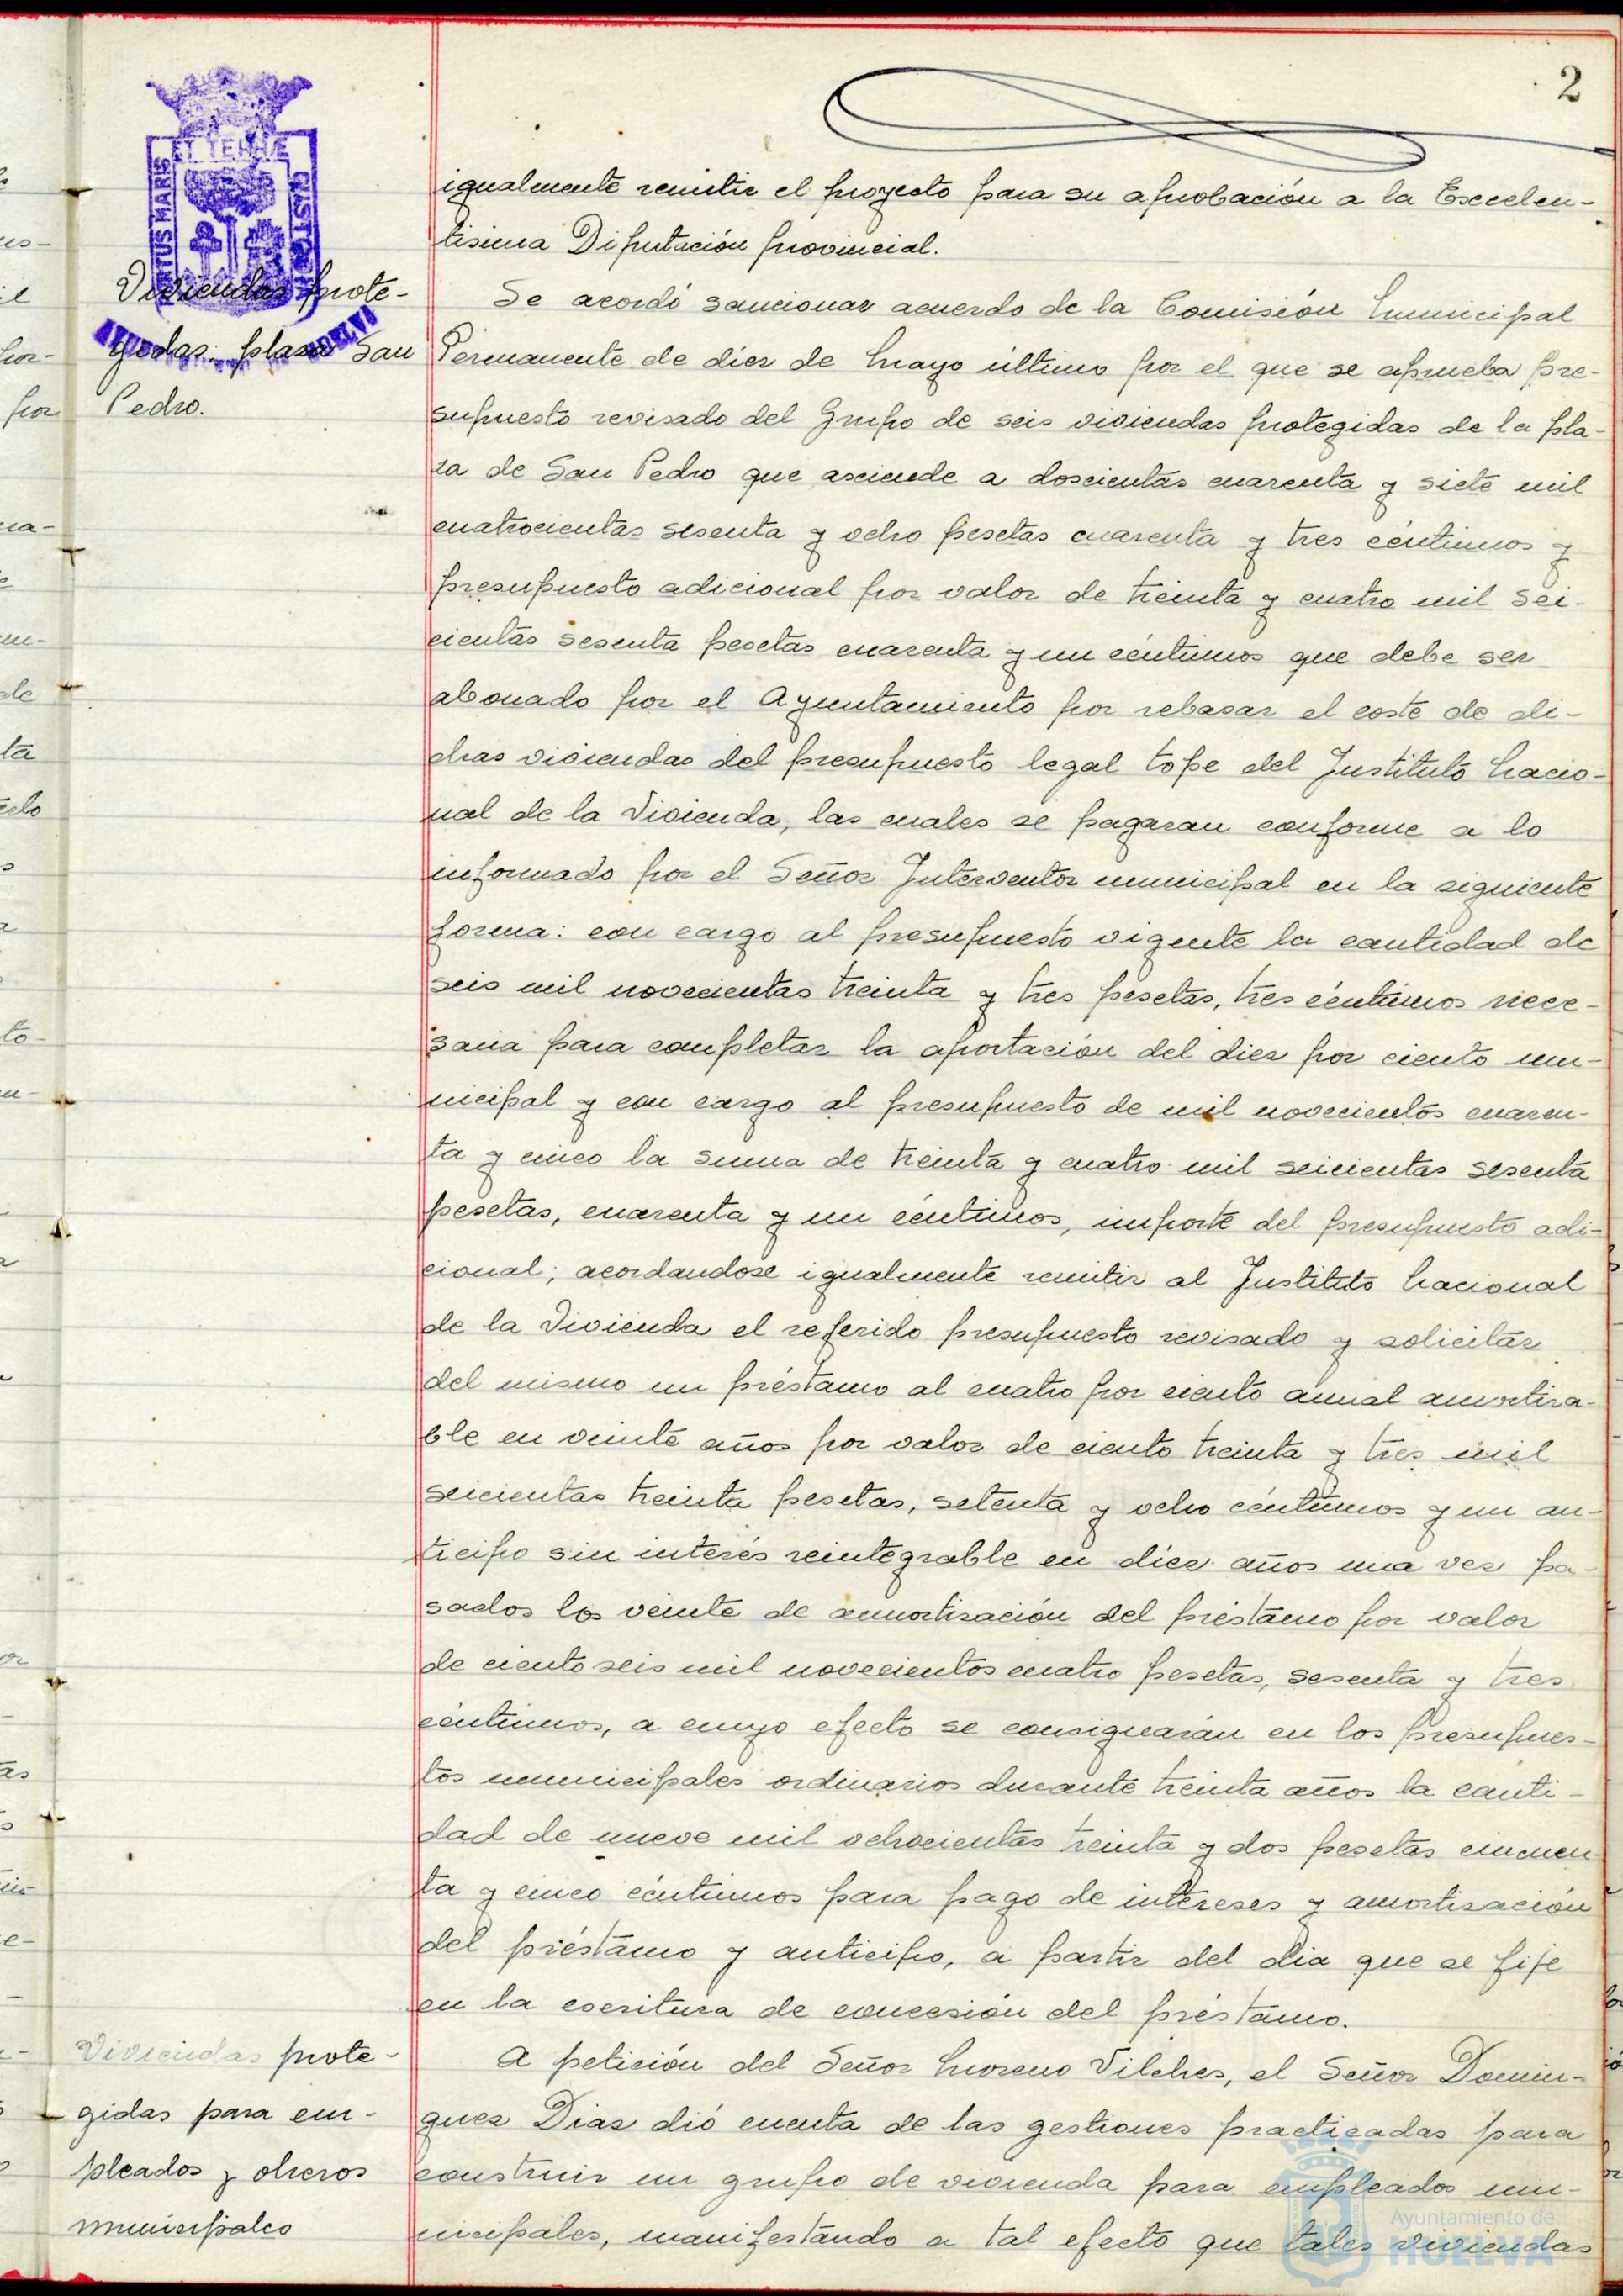 2
ET TERRÆ
PORTUS MARIS
CUSTODIA
igualmente remitir el proyecto para su aprobación a la Excelen-
tisima Diputación provincial.
Viviendas prote-
gidas: plaza San
Pedro.
Se acordó sancionar acuerdo de la Comisión Municipal
Permanente de diez de Mayo último por el que se aprueba pre-
supuesto revisado del Grupo de seis viviendas protegidas de la pla-
za de San Pedro que asciende a doscientas cuarenta y siete mil
cuatrocientas sesenta y ocho pesetas cuarenta y tres céntimos y
presupuesto adicional por valor de treinta y cuatro mil sei-
cientas sesenta pesetas cuarenta y un céntimos que debe ser
abonado por el Ayuntamiento por rebasar el coste de di-
chas viviendas del presupuesto legal tope del Instituto Nacio-
nal de la Vivienda, las cuales se pagaran conforme a lo
informado por el Señor Interventor municipal en la siguiente
forma: con cargo al presupuesto vigente la cantidad de
seis mil novecientas treinta y tres pesetas, tres céntimos nece-
saria para completar la aportación del diez por ciento mu-
nicipal y con cargo al presupuesto de mil novecientos cuaren-
ta y cinco la suma de treinta y cuatro mil seicientas sesenta
pesetas, cuarenta y un céntimos, importe del presupuesto adi-
cional; acordandose igualmente remitir al Instituto Nacional
de la Vivienda el referido presupuesto revisado y solicitar
del mismo un préstamo al cuatro por ciento anual amortiza-
ble en veinte años por valor de ciento treinta y tres mil
seicientas treinta pesetas, setenta y ocho céntimos y un an-
ticipo sin interés reintegrable en diez años una vez pa-
sados los veinte de amortización del préstamo por valor
de ciento seis mil novecientos cuatro pesetas, sesenta y tres
céntimos, a cuyo efecto se consignarán en los presupues-
tos municipales ordinarios durante treinta años la canti-
dad de nueve mil ochocientas treinta y dos pesetas cincuen
ta y cinco céntimos para pago de intereses y amortización
del préstamo y anticipo, a partir del dia que se fije
en la escritura de concesión del préstamo.
Viviendas prote-
gidas para em-
pleados y obreros
municipales
A petición del Señor Moreno Vilches, el Señor Domin-
guez Diaz dió cuenta de las gestiones practicadas para
construir un grupo de vivienda para empleados mu-
nicipales, manifestando a tal efecto que tales viviendas
Ayuntamiento de
HUELVA